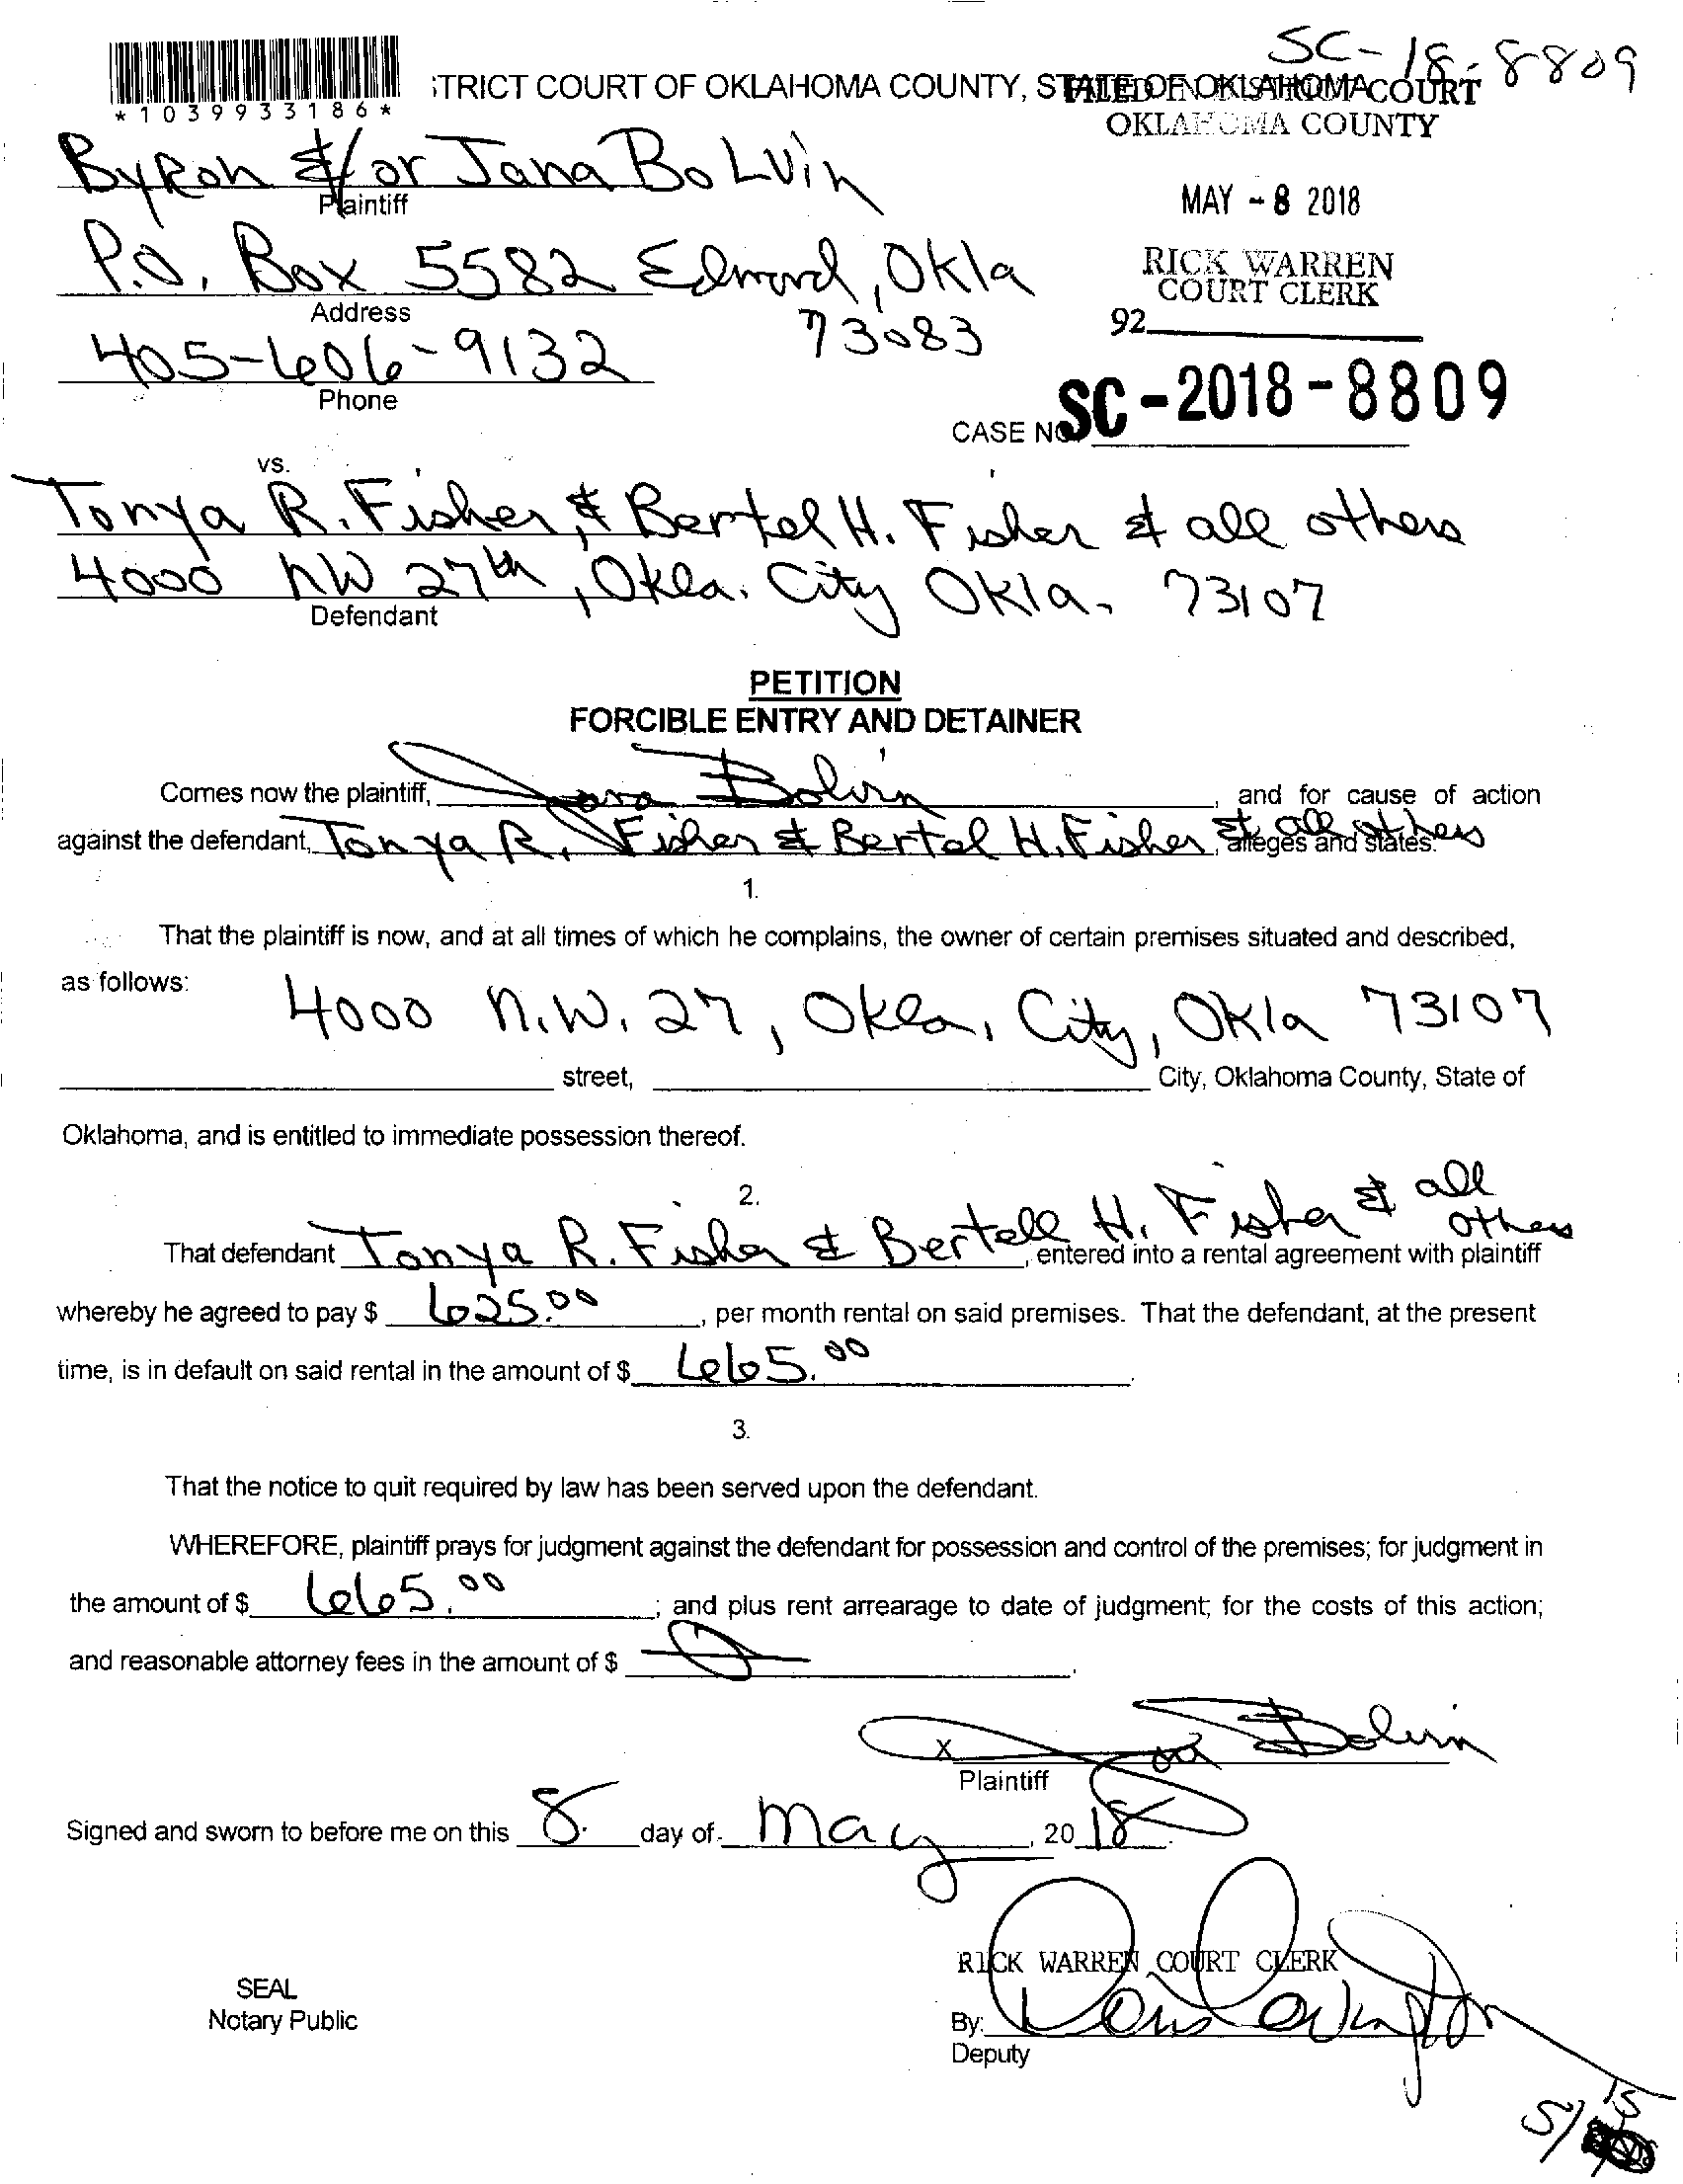 SC-18-8809
*1039933186*
TRICT COURT OF OKLAHOMA COUNTY, STATE OF OKLAHOMA
FILED IN DISTRICT COURT
OKLAHOMA COUNTY
Byron &/or Jana BoLvin
Plaintiff
MAY - 8 2018
P.O. Box 5582 Edmond, Okla
73083
Address
RICK WARREN
COURT CLERK
92
405-606-9132
Phone
CASE NO. SC-2018-8809
vs.
Tonya R. Fisher & Bertel H. Fisher & all others
4000 NW 27th, Okla. City Okla. 73107
Defendant
PETITION
FORCIBLE ENTRY AND DETAINER
Comes now the plaintiff, Jana Bolvin, and for cause of action
against the defendant, Tonya R. Fisher & Bertel H. Fisher & all others, alleges and states:
1.
That the plaintiff is now, and at all times of which he complains, the owner of certain premises situated and described,
as follows:
4000 N.W. 27, Okla. City, Okla 73107
street, City, Oklahoma County, State of
Oklahoma, and is entitled to immediate possession thereof.
2.
That defendant Tonya R. Fisher & Bertell H. Fisher & all others, entered into a rental agreement with plaintiff
whereby he agreed to pay $ 625.00, per month rental on said premises. That the defendant, at the present
time, is in default on said rental in the amount of $ 665.00.
3.
That the notice to quit required by law has been served upon the defendant.
WHEREFORE, plaintiff prays for judgment against the defendant for possession and control of the premises; for judgment in
the amount of $ 665.00; and plus rent arrearage to date of judgment; for the costs of this action;
and reasonable attorney fees in the amount of $
X Jana Bolvin
Plaintiff
Signed and sworn to before me on this 8 day of May, 2018.
RICK WARREN COURT CLERK
SEAL
Notary Public
By:
Deputy
5/15